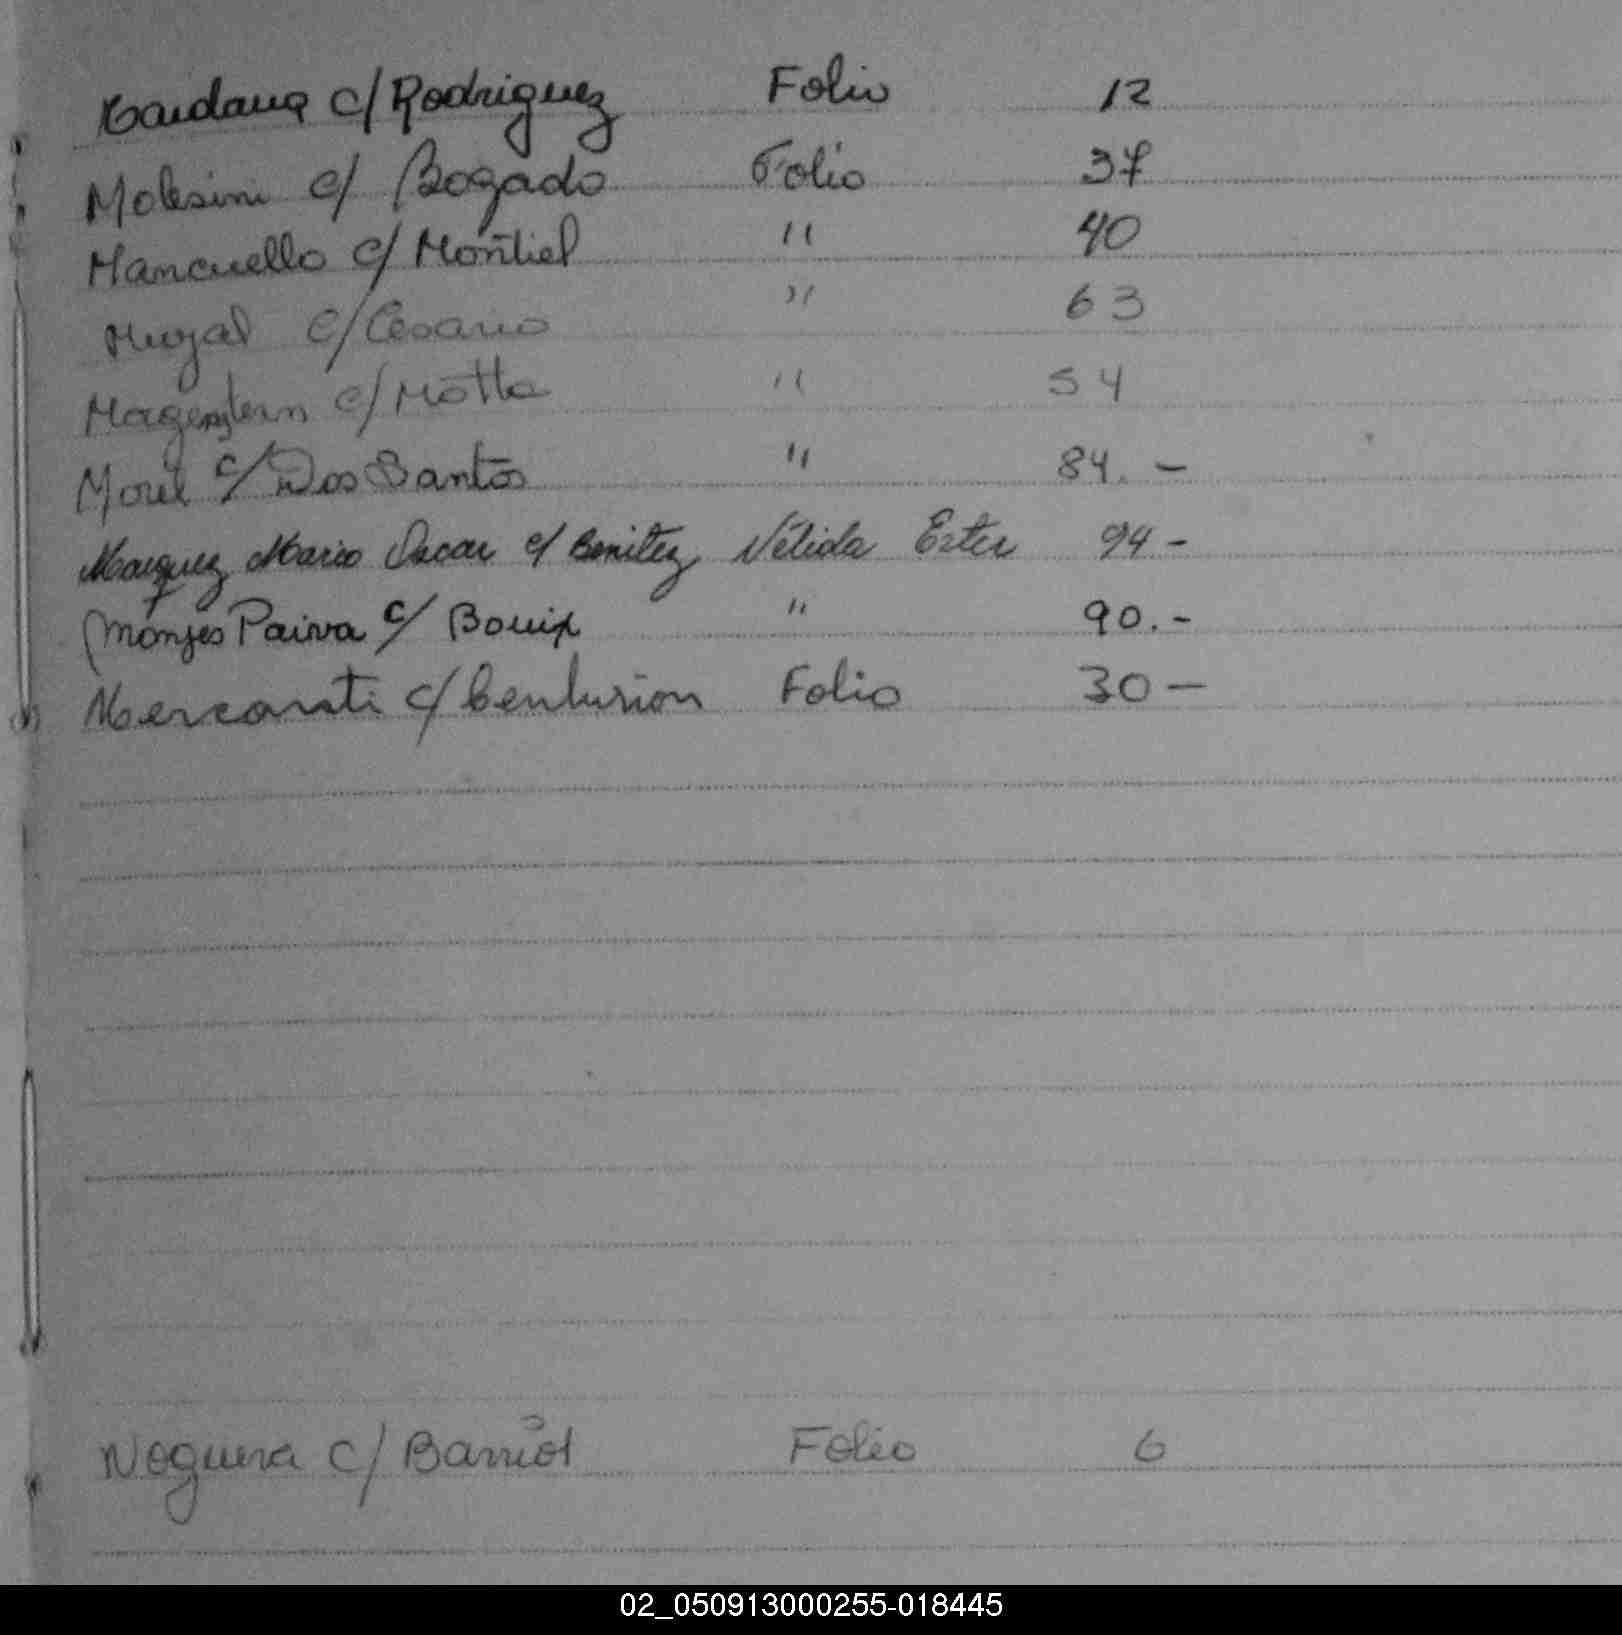 Maidana c/ Rodriguez Folio 12
Molesini c/ Bogado Folio 37
Mancuello c/ Montiel " 40
c/ Cesario " 63
Magenstern c/ Motta " 54
Morel c/ Dos Santos " 84.-
Marquez Mario Oscar c/ Benitez Nélida Ester 94-
Monges Paiva c/ Bouix " 90.-
Mercanti c/ Centurion Folio 30-
Noguera c/ Barriol Folio 6
02_050913000255-018445